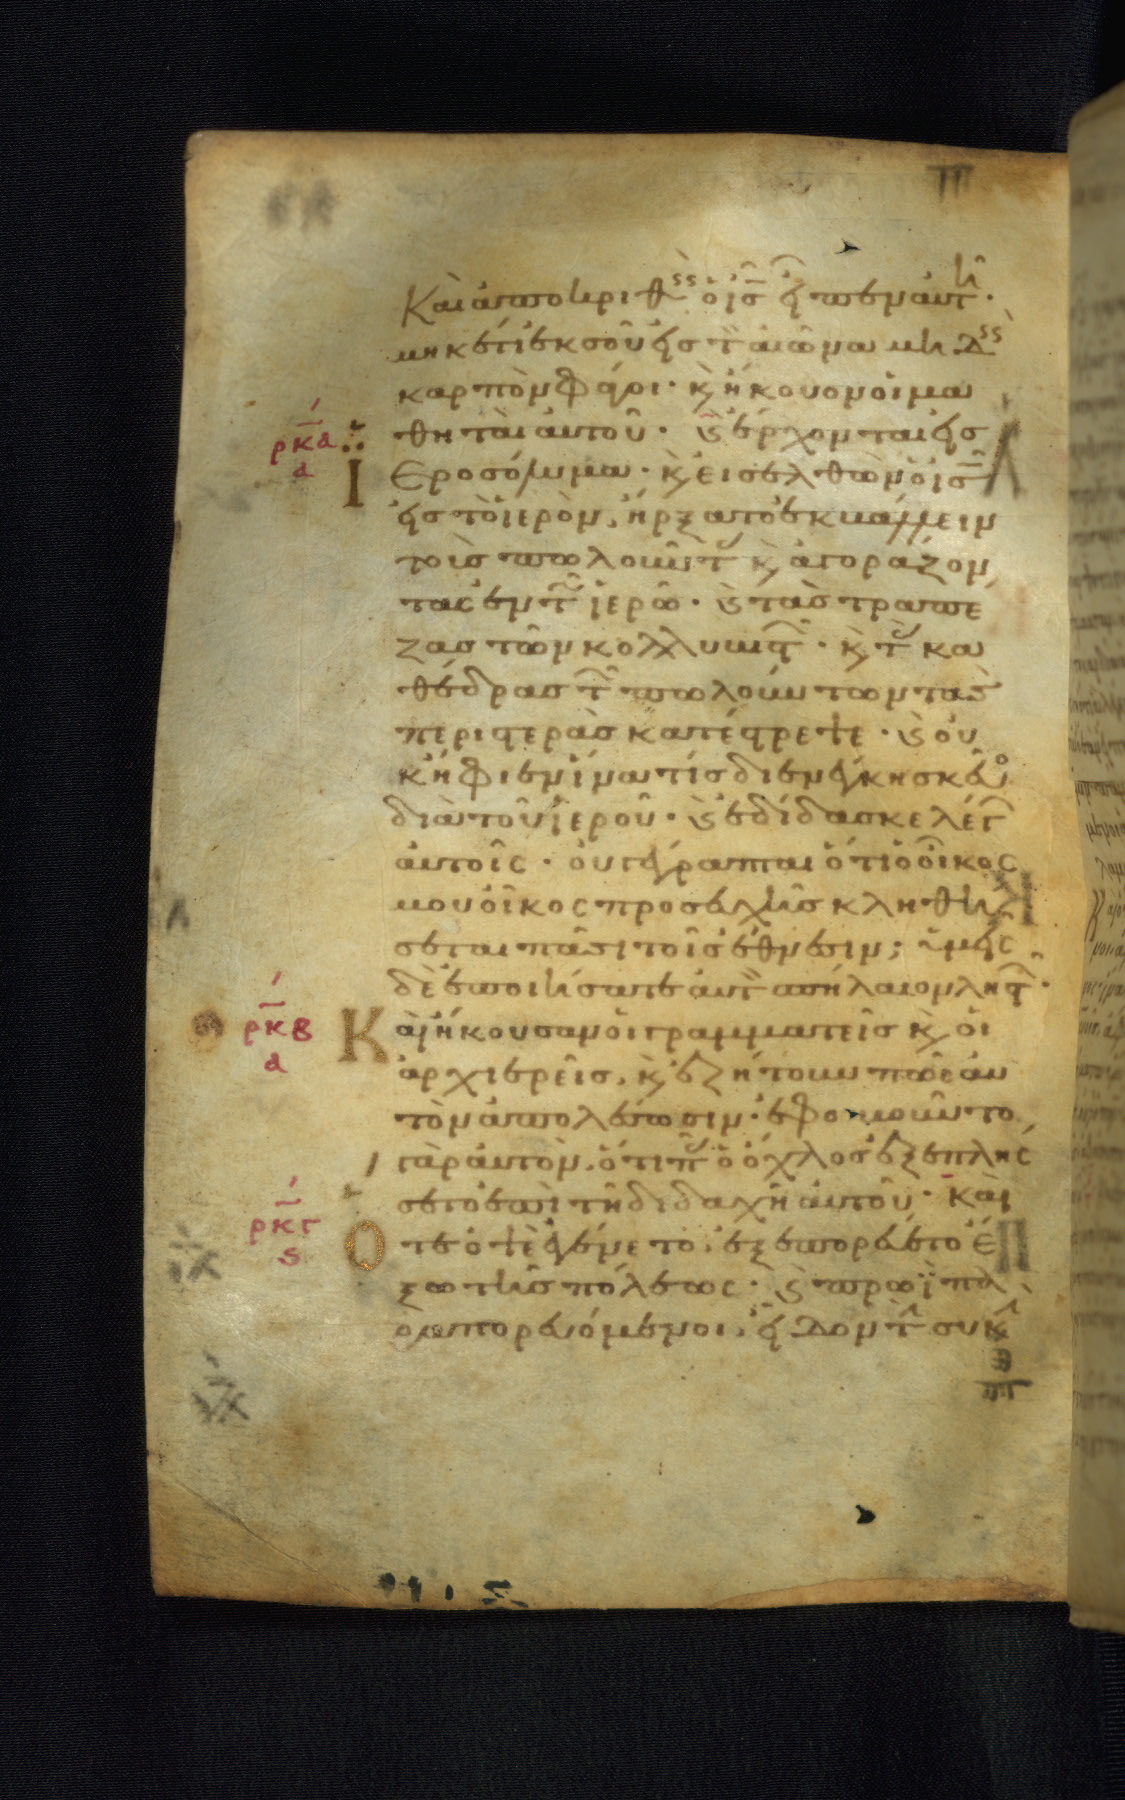 Καὶ ἀποκριθεὶς ὁ ι̅ς̅ εἶπεν αὐτῆ·
μηκέτι ἐκ σοῦ εἰς τὸν αἰῶνα μηδεὶς
καρπὸν φάγοι· κ̀ ἤκουον οἱ μα
ρκα θηταὶ αὐτοῦ· κ̀ ἔρχονται εἰς
α Ιεροσόλυμα· κ̀ εἰσελθὼν ὁ ι̅ς̅
εἰς τὸ ἱερὸν, ἤρξατο ἐκβάλλειν
τοὺς πωλοῦντας κ̀ ἀγοράζον
τας ἐν τῶ ἱερῶ· κ̀ τὰς τραπέ
ζας τῶν κολλυβιστῶν· κ̀ τὰς κα
θέδρας τῶν πωλούντων τὰς
περιστερὰς κατέστρεψε· κ̀ οὐ
κ ἤφιεν ἵνα τίς διενέγκη σκεῦος
διὰ τοῦ ἱεροῦ· κ̀ ἐδίδασκε λέγων
αὐτοῖς· οὐ γέγραπται ὅτι ὁ οἶκος
μου οἶκος προσευχῆς κληθή
σεται πᾶσι τοῖς ἔθνεσιν; ὑμεῖς
δὲ ἐποιήσατε αὐτὸν σπήλαιον ληστῶν·
ρκβ Καὶ ἤκουσαν οἱ γραμματεῖς κ̀ οἱ
α ἀρχιερεῖς, κ̀ ἐζήτουν πῶς αὐ
τὸν ἀπολέσωσιν· ἐφοβοῦντο
γὰρ αὐτὸν, ὅτι πᾶς ὁ ὄχλος ἐξεπλήσ
ρκγ σετο ἐπὶ τῆ διδαχῆ αὐτοῦ· Καὶ
ς Οτε ὀψὲ ἐγένετο, ἐξεπορεύετο ἔ
ξω τῆς πόλεως· κ̀ πρωῒ πα
ραπορευόμενοι, εἶδον τὴν συκῆν